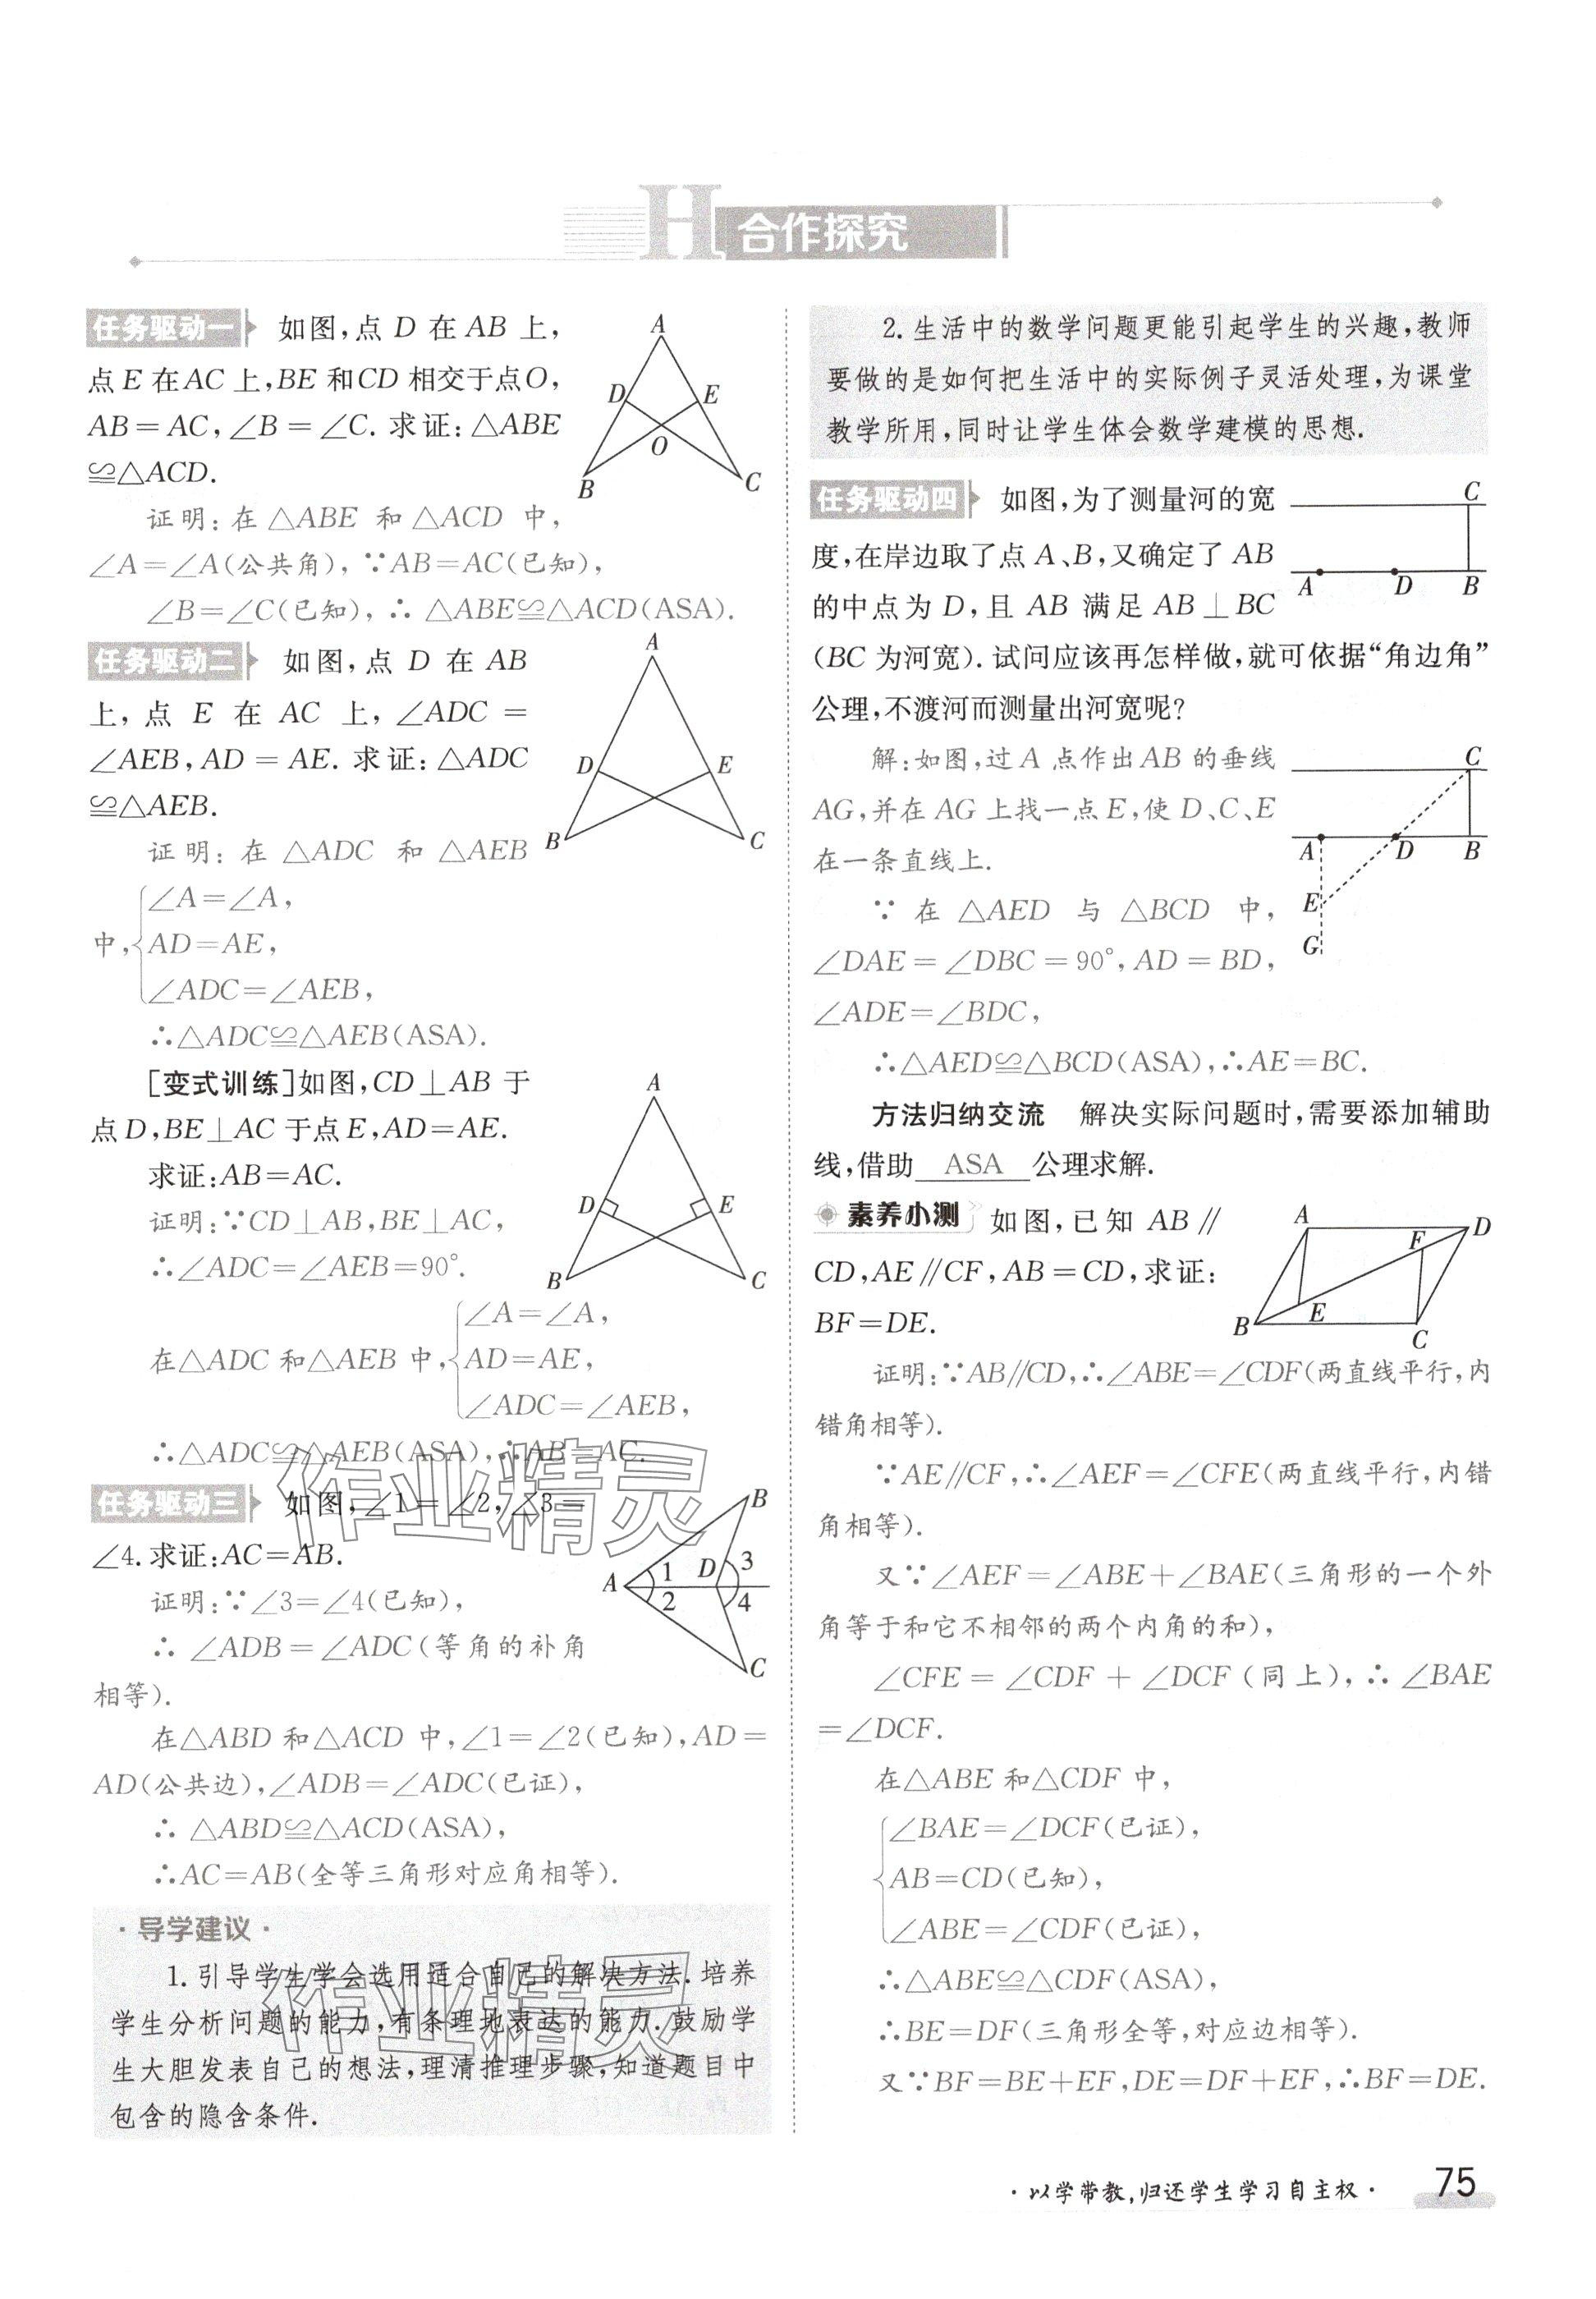 H 合作探究
任务驱动一 如图,点 D 在 AB 上,
点 E 在AC 上,BE 和CD 相交于点O,
AB=AC,∠B=∠C. 求证:△ABE
≌△ACD.
A
D
E
O
B
C
证明:在 △ABE 和 △ACD 中,
∠A=∠A(公共角),∵AB=AC(已知),
∠B=∠C(已知),∴ △ABE≌△ACD(ASA).
任务驱动二 如图,点 D 在 AB
上,点 E 在 AC 上,∠ADC =
∠AEB,AD = AE. 求证:△ADC
≌△AEB.
A
D
E
B
C
证明:在 △ADC 和 △AEB
中,{∠A=∠A,
AD=AE,
∠ADC=∠AEB,
∴△ADC≌△AEB(ASA).
[变式训练]如图,CD⊥AB 于
点 D,BE⊥AC 于点 E,AD=AE.
求证:AB=AC.
A
D
E
B
C
证明:∵CD⊥AB,BE⊥AC,
∴∠ADC=∠AEB=90°.
在△ADC 和△AEB 中,{∠A=∠A,
AD=AE,
∠ADC=∠AEB,
∴△ADC≌△AEB(ASA),∴AB=AC.
任务驱动三 如图,∠1=∠2,∠3=
∠4.求证:AC=AB.
A
B
C
D
1
2
3
4
证明:∵∠3=∠4(已知),
∴ ∠ADB=∠ADC(等角的补角
相等).
在△ABD 和△ACD 中,∠1=∠2(已知),AD=
AD(公共边),∠ADB=∠ADC(已证),
∴ △ABD≌△ACD(ASA),
∴AC=AB(全等三角形对应角相等).
·导学建议·
1. 引导学生学会选用适合自己的解决方法.培养
学生分析问题的能力,有条理地表达的能力.鼓励学
生大胆发表自己的想法,理清推理步骤,知道题目中
包含的隐含条件.
作业精灵
作业精灵
2. 生活中的数学问题更能引起学生的兴趣,教师
要做的是如何把生活中的实际例子灵活处理,为课堂
教学所用,同时让学生体会数学建模的思想.
任务驱动四 如图,为了测量河的宽
度,在岸边取了点 A、B,又确定了 AB
的中点为 D,且 AB 满足 AB⊥BC
(BC 为河宽).试问应该再怎样做,就可依据“角边角”
公理,不渡河而测量出河宽呢?
C
A
D
B
解:如图,过 A 点作出 AB 的垂线
AG,并在 AG 上找一点 E,使 D、C、E
在一条直线上.
C
A
D
B
E
G
∵ 在 △AED 与 △BCD 中,
∠DAE=∠DBC=90°,AD=BD,
∠ADE=∠BDC,
∴△AED≌△BCD(ASA),∴AE=BC.
方法归纳交流 解决实际问题时,需要添加辅助
线,借助 ASA 公理求解.
素养小测 如图,已知 AB∥
CD,AE∥CF,AB=CD,求证:
BF=DE.
A
D
F
E
B
C
证明:∵AB∥CD,∴∠ABE=∠CDF(两直线平行,内
错角相等).
∵AE∥CF,∴∠AEF=∠CFE(两直线平行,内错
角相等).
又∵∠AEF=∠ABE+∠BAE(三角形的一个外
角等于和它不相邻的两个内角的和),
∠CFE=∠CDF+∠DCF(同上),∴∠BAE
=∠DCF.
在△ABE 和△CDF 中,
{∠BAE=∠DCF(已证),
AB=CD(已知),
∠ABE=∠CDF(已证),
∴△ABE≌△CDF(ASA),
∴BE=DF(三角形全等,对应边相等).
又∵BF=BE+EF,DE=DF+EF,∴BF=DE.
·以学带教,归还学生学习自主权·
75